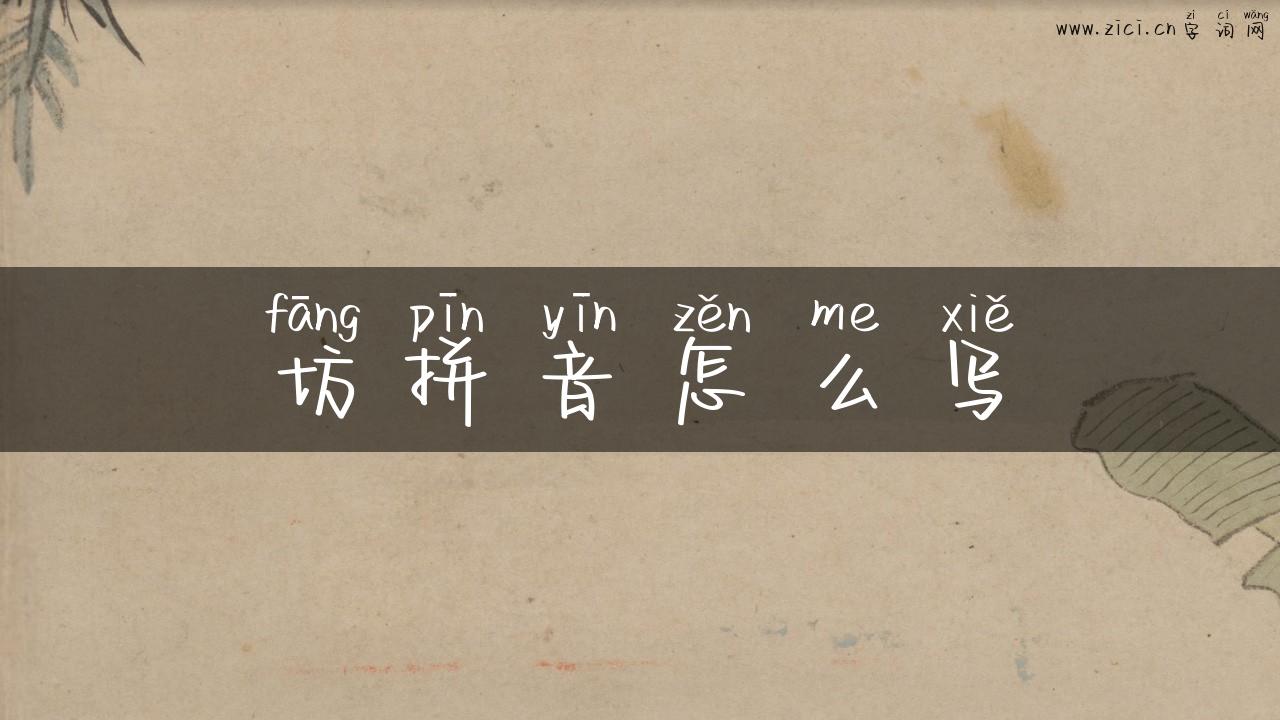 zì cí wǎng
www.zici.cn 字词网
fāng pīn yīn zěn me xiě
坊拼音怎么写